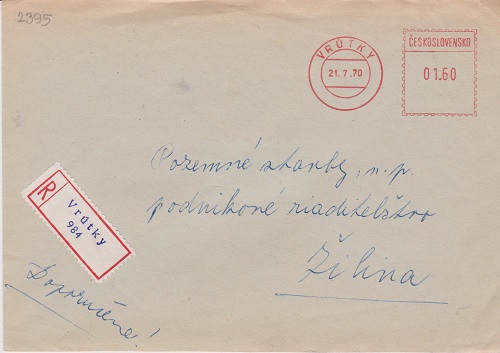 2395
VRÚTKY
21.7.70
ČESKOSLOVENSKO
01.60
Pozemné stavby, n.p.
podnikové riaditeľstvo
Žilina
R
Vrútky
984
Doporučene!